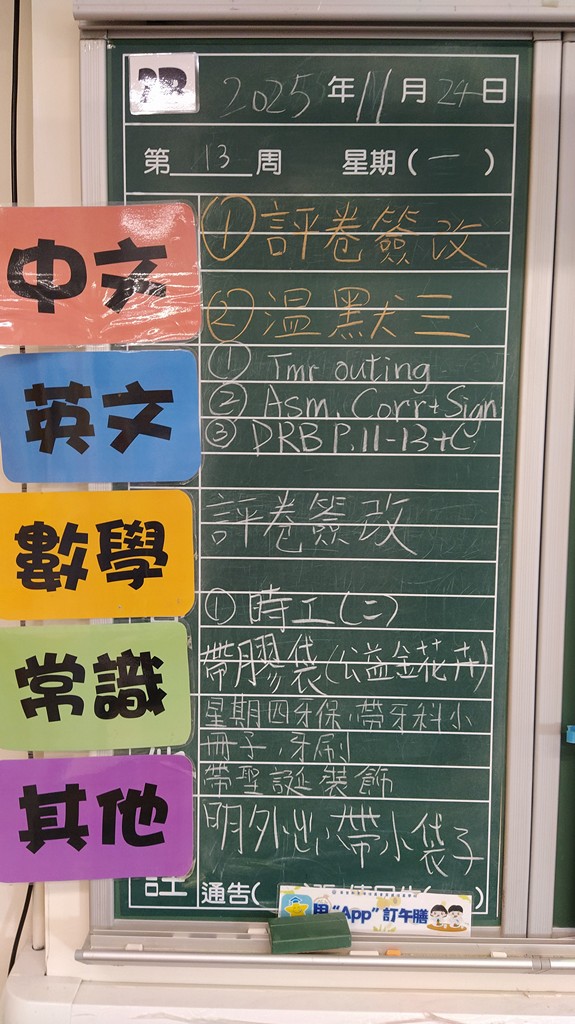 2025年11月24日
第13周 星期(一)
中文
①評卷簽改
②溫默三
英文
① Tmr outing
② Asm. Corr+Sign
③ DRB P.11-13+C
數學
評卷簽改
常識
①時工(二)
其他
帶膠袋(公益金花卉)
星期四牙保,帶牙科小
冊子,牙刷
帶聖誕裝飾
明外出,帶小袋子
註 通告(
用“App”訂午膳